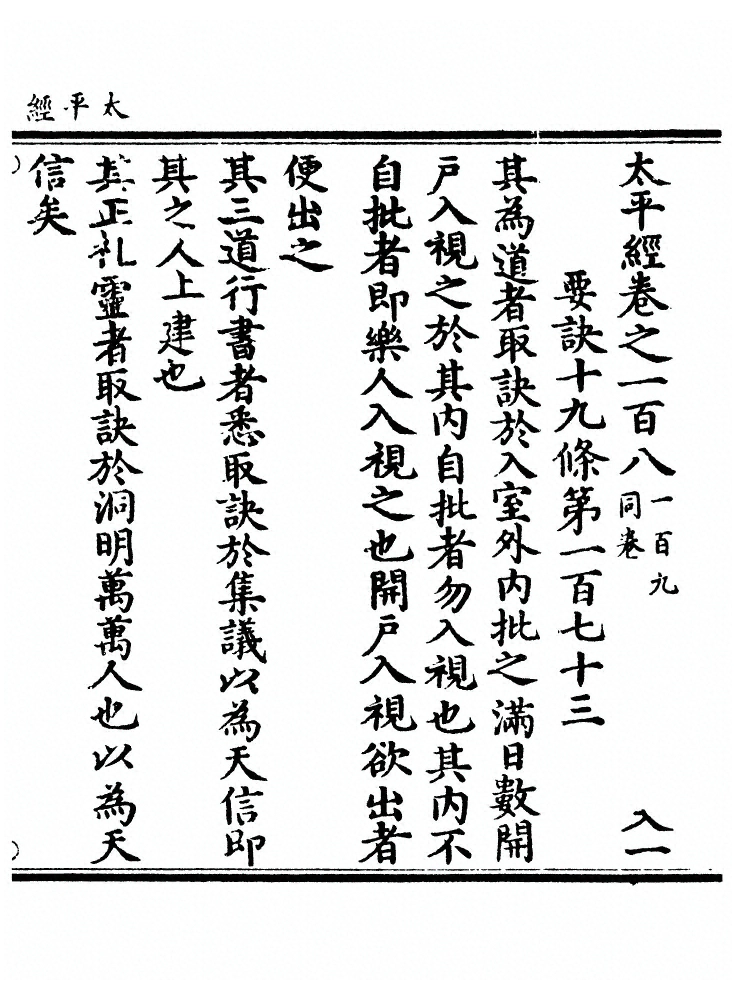 太平經
太平經卷之一百八 一百九同卷 入一
要訣十九條第一百七十三
其為道者取訣於入室外内批之滿日數開
戶入視之於其内自批者勿入視也其内不
自批者即樂人入視之也開戶入視欲出者
便出之
其三道行書者悉取訣於集議以為天信即
其之人上建也
其正礼靈者取訣於洞明萬萬人也以為天
信矣